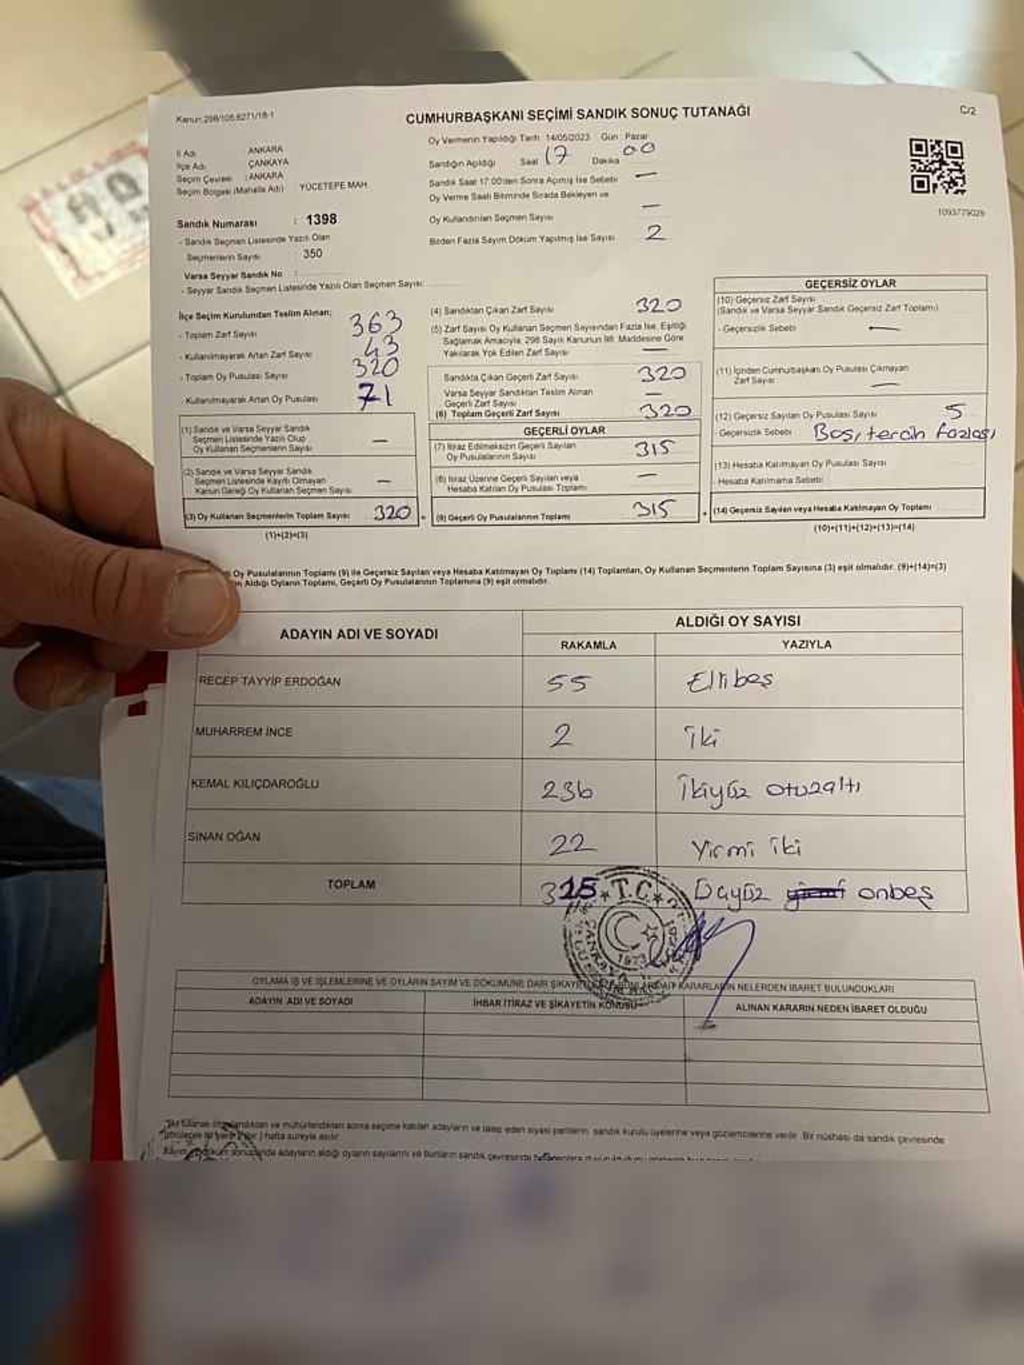 Kanun:298/105,6271/18-1
CUMHURBAŞKANI SEÇİMİ SANDIK SONUÇ TUTANAĞI
C/2
İl Adı : ANKARA
İlçe Adı : ÇANKAYA
Seçim Çevresi : ANKARA
Seçim Bölgesi (Mahalle Adı) : YÜCETEPE MAH.
Sandık Numarası : 1398
- Sandık Seçmen Listesinde Yazılı Olan
Seçmenlerin Sayısı : 350
Varsa Seyyar Sandık No :
- Seyyar Sandık Seçmen Listesinde Yazılı Olan Seçmen Sayısı:
Oy Vermenin Yapıldığı Tarih 14/05/2023 Gün : Pazar
Sandığın Açıldığı Saat 17 Dakika 00
Sandık Saat 17:00'den Sonra Açılmış İse Sebebi —
Oy Verme Saati Bitiminde Sırada Bekleyen ve
Oy Kullandırılan Seçmen Sayısı —
Birden Fazla Sayım Döküm Yapılmış İse Sayısı 2
1093779026
İlçe Seçim Kurulundan Teslim Alınan;
- Toplam Zarf Sayısı 363
- Kullanılmayarak Artan Zarf Sayısı 43
- Toplam Oy Pusulası Sayısı 320
- Kullanılmayarak Artan Oy Pusulası 71
(1) Sandık ve Varsa Seyyar Sandık
Seçmen Listesinde Yazılı Olup
Oy Kullanan Seçmenlerin Sayısı —
(2) Sandık ve Varsa Seyyar Sandık
Seçmen Listesinde Kayıtlı Olmayan
Kanun Gereği Oy Kullanan Seçmen Sayısı —
(3) Oy Kullanan Seçmenlerin Toplam Sayısı 320
(1)+(2)=(3)
(4) Sandıktan Çıkan Zarf Sayısı 320
(5) Zarf Sayısı Oy Kullanan Seçmen Sayısından Fazla İse, Eşitliği
Sağlamak Amacıyla, 298 Sayılı Kanunun 98. Maddesine Göre
Yakılarak Yok Edilen Zarf Sayısı —
Sandıkta Çıkan Geçerli Zarf Sayısı 320
Varsa Seyyar Sandıktan Teslim Alınan
Geçerli Zarf Sayısı —
(6) Toplam Geçerli Zarf Sayısı 320
GEÇERLİ OYLAR
(7) İtiraz Edilmeksizin Geçerli Sayılan
Oy Pusulalarının Sayısı 315
(8) İtiraz Üzerine Geçerli Sayılan veya
Hesaba Katılan Oy Pusulası Toplamı —
(9) Geçerli Oy Pusulalarının Toplamı 315
GEÇERSİZ OYLAR
(10) Geçersiz Zarf Sayısı
(Sandık ve Varsa Seyyar Sandık Geçersiz Zarf Toplamı)
- Geçersizlik Sebebi —
(11) İçinden Cumhurbaşkanı Oy Pusulası Çıkmayan
Zarf Sayısı —
(12) Geçersiz Sayılan Oy Pusulası Sayısı 5
- Geçersizlik Sebebi : Boş, tercih fazlası
(13) Hesaba Katılmayan Oy Pusulası Sayısı
- Hesaba Katılmama Sebebi
(14) Geçersiz Sayılan veya Hesaba Katılmayan Oy Toplamı
(10)+(11)+(12)+(13)=(14)
Oy Pusulalarının Toplamı (9) ile Geçersiz Sayılan veya Hesaba Katılmayan Oy Toplamı (14) Toplamları, Oy Kullanan Seçmenlerin Toplam Sayısına (3) eşit olmalıdır. (9)+(14)=(3)
Aldığı Oyların Toplamı, Geçerli Oy Pusulalarının Toplamına (9) eşit olmalıdır.
ADAYIN ADI VE SOYADI
ALDIĞI OY SAYISI
RAKAMLA YAZIYLA
RECEP TAYYİP ERDOĞAN 55 Ellibeş
MUHARREM İNCE 2 iki
KEMAL KILIÇDAROĞLU 236 İkiyüz otuzaltı
SİNAN OĞAN 22 Yirmi iki
TOPLAM 315 Üçyüz onbeş
T.C.
ÇANKAYA
OYLAMA İŞ VE İŞLEMLERİNE VE OYLARIN SAYIM VE DÖKÜMÜNE DAİR KARARLARIN NELERDEN İBARET BULUNDUKLARI
ADAYIN ADI VE SOYADI
İHBAR İTİRAZ VE ŞİKAYETİN KONUSU
ALINAN KARARIN NEDEN İBARET OLDUĞU
sonra seçime katılan adayların ve talep eden siyasi partilerin, sandık kurulu üyelerine veya gözlemcilerine verilir. Bir nüshası da sandık çevresinde
hafta süreyle asılır.